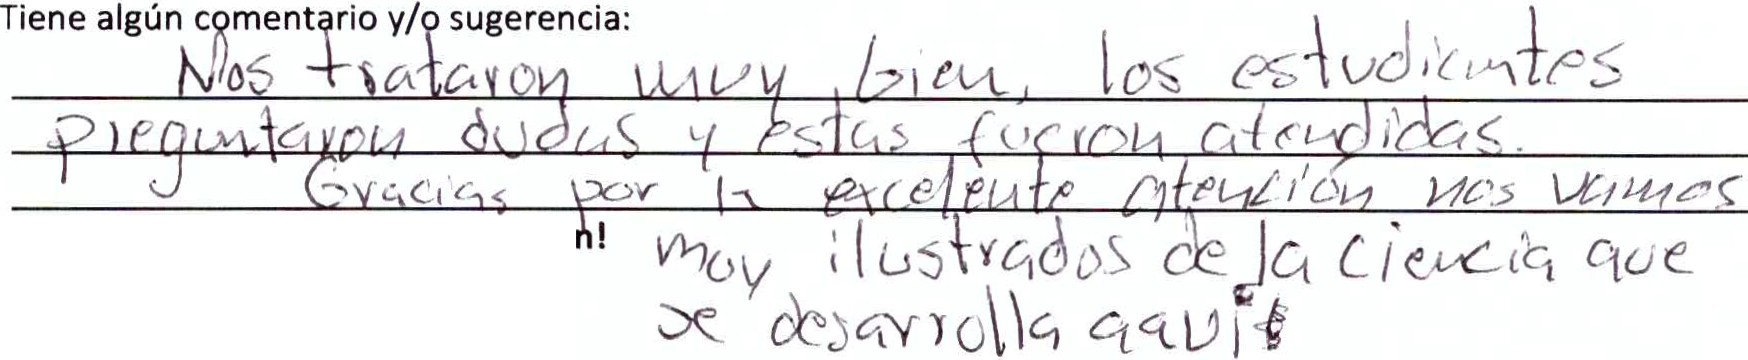 Tiene algún comentario y/o sugerencia:
Nos trataron muy bien, los estudiantes
preguntaron dudas y estas fueron atendidas.
Gracias por la excelente atención nos vamos
n! muy ilustrados de la ciencia que
se desarrolla aquí